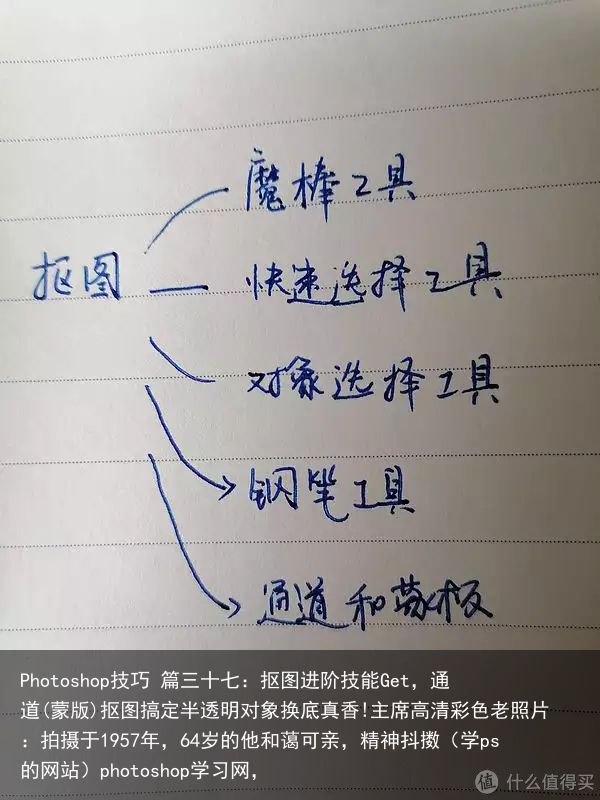 魔棒工具
抠图 快速选择工具
对象选择工具
钢笔工具
通道和蒙板
Photoshop技巧 篇三十七：抠图进阶技能Get，通
道(蒙版)抠图搞定半透明对象换底真香!主席高清彩色老照片
：拍摄于1957年，64岁的他和蔼可亲，精神抖擞（学ps
的网站）photoshop学习网，
值 什么值得买